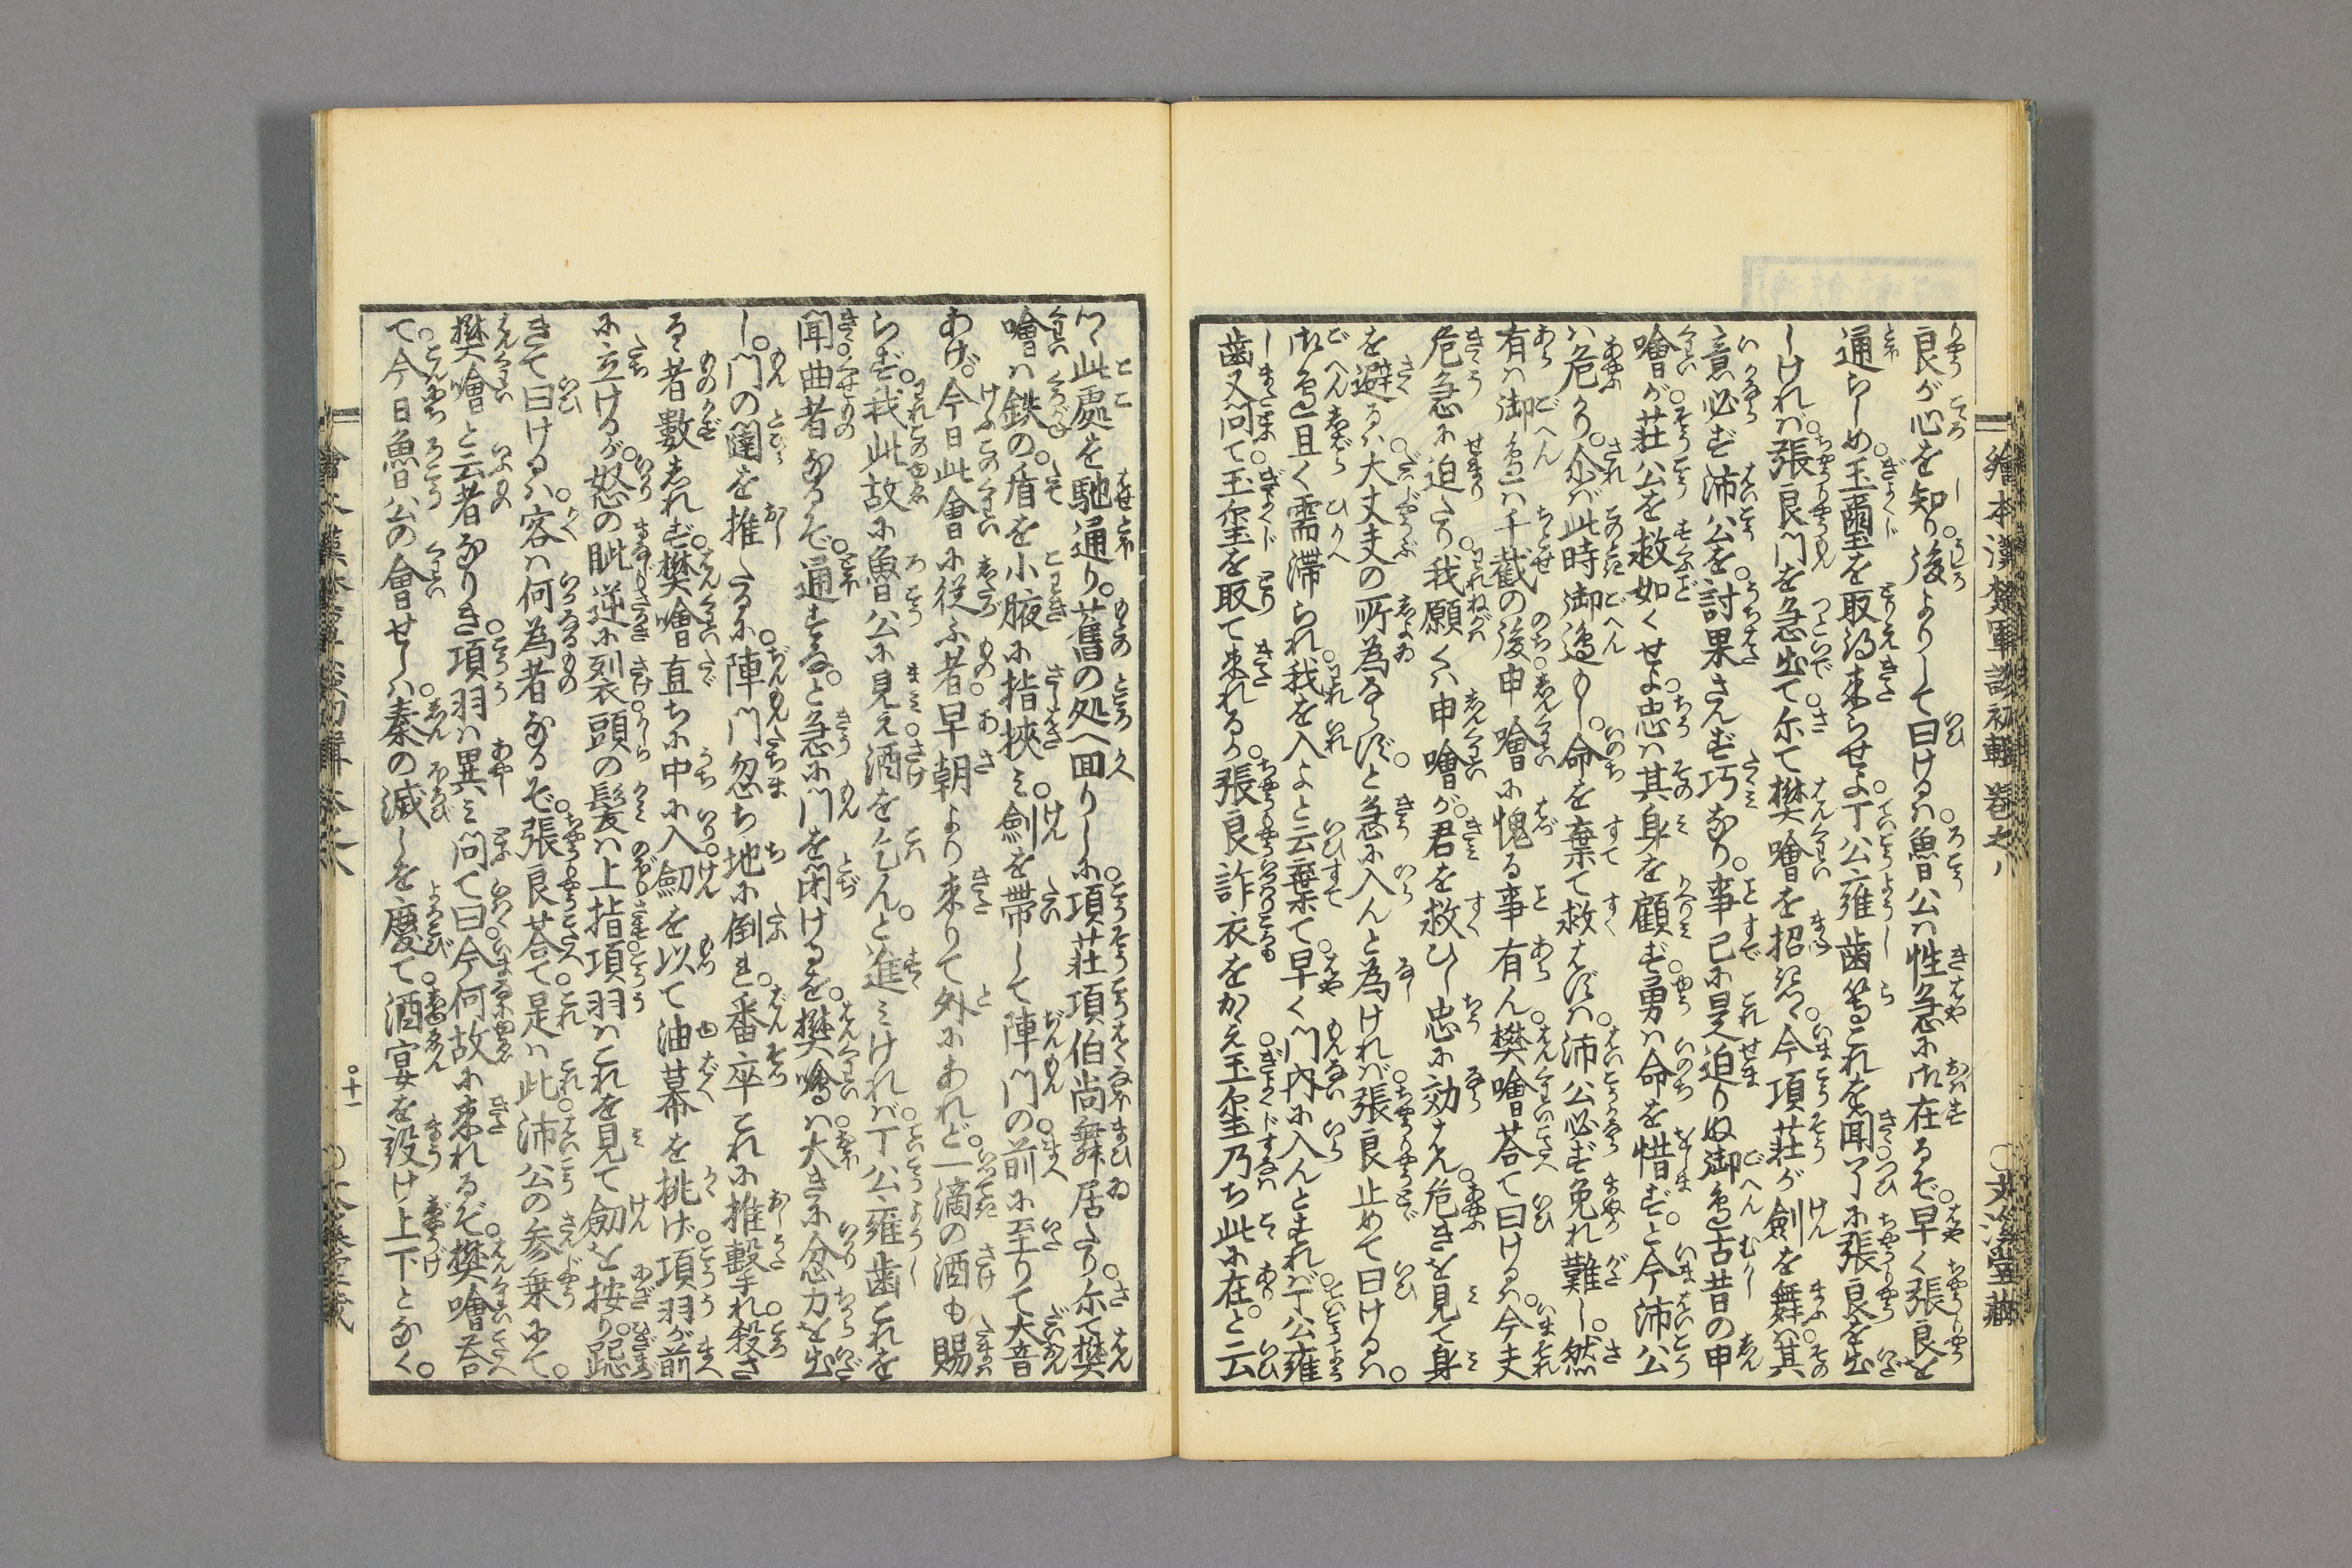 繪本漢楚軍談初輯 卷之八 ○文溪堂藏
良が心を知り後よりして曰けるハ魯公ハ性急に在るぞ早く張良を
通らしめ玉璽を取得来らせよ丁公雍歯等これを聞了に張良を出
しけれバ張良門を急出て尓て樊噲を招き今項荘が劍を舞ハ其
意必ず沛公を討果さんず巧なり事已に是迫りぬ御邉古昔の申
噲が荘公を救如くせよ忠ハ其身を顧ず勇ハ命を惜ずと今沛公
ハ危かり尒バ此時御邉もし命を棄て救ハずハ沛公必ず免れ難し然
有ハ御邉ハ千載の後申噲に愧る事有ん樊噲荅て曰けるハ今夫
危急に迫たり我願くハ申噲が君を救ひし忠に効はん危きを見て身
を避るハ大丈夫の所為ならずと急に入んと為けれバ張良止めて曰けるハ
御邉且く需滞られ我を入よと云棄て早く門内に入んとすれバ丁公雍
歯又問て玉璽を取て来れるか張良詐衣をかゝえ玉璽乃ち此に在と云
つゝ此處を馳通り舊の処へ回りしに項荘項伯尚舞居たり尓て樊
噲ハ鉄の盾を小腋に指挾ミ劍を帶して陣門の前に至りて大音
あげ今日此會に従ふ者早朝より来りて外にあれど一滴の酒も賜
らず我此故に魯公に見え酒を乞んと進ミけれバ丁公雍歯これを
聞曲者なるぞ通すなと急に門を閉けるを樊噲ハ大きに忿力を出
し門の闥を推たるに陣門忽ち地に倒れ番卒これに推撃れ殺さ
るゝ者數しれず樊噲直ちに中に入劔を以て油幕を挑げ項羽が前
に立けるが怒の眦逆に烈頭の髪ハ上指項羽ハこれを見て劔を按り跽
きて曰けるハ客ハ何為者なるぞ張良荅て是ハ此沛公の参乗にて
樊噲と云者なりき項羽ハ異ミ問て曰今何故に来れるぞ樊噲荅
て今日魯公の會せしハ秦の滅しを慶て酒宴を設け上下となく
○十一